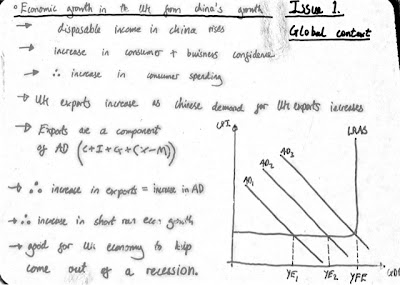 ° Economic growth in the UK from china's growth
Issue 1.
Global context
→ disposable income in china rises
→ increase in consumer + buisness confidence
→ ∴ increase in consumer spending
→ UK exports increase as chinese demand for UK exports increases
→ Exports are a component
of AD (C+I+G+(X-M))
→ ∴ increase in exports = increase in AD
→ ∴ increase in short run econ growth
→ good for UK economy to help
come out of a recession.
AD1
AD2
AD3
LRAS
YE1
YE2
YFE